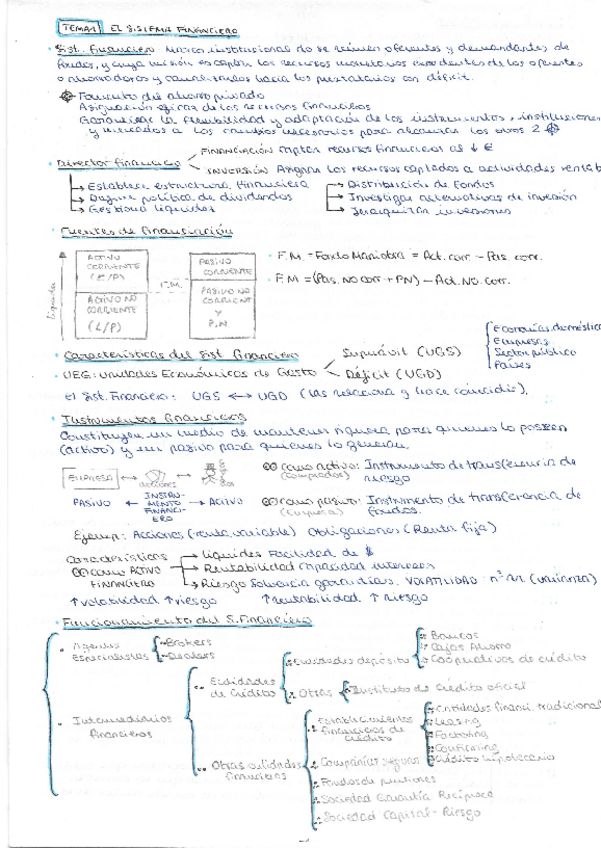 TEMA 1 EL SISTEMA FINANCIERO
· Sist. Financiero: Marco institucional do se reúnen oferentes y demandantes de
fondos, y cuya misión es captar los recursos monetarios excedentes de los oferentes
o ahorradores y canalizarlos hacia los prestatarios con déficit.
Fomento del ahorro privado
Asignación eficaz de los recursos financieros
Garantizar la flexibilidad y adaptación de los instrumentos, instituciones
y mercados a los cambios necesarios para alcanzar los otros 2
· Director financiero
FINANCIACIÓN captar recursos financieros al ↓ €
INVERSIÓN Asignar los recursos captados a actividades rentab
→ Establece estructura financiera
→ Define política de dividendos
→ Gestiona liquidez
→ Distribución de fondos
→ Investigar alternativas de inversión
→ Jerarquizan inversiones
· Fuentes de financiación
Liquidez
ACTIVO CORRIENTE (C/P)
ACTIVO NO CORRIENTE (L/P)
F.M.
PASIVO CORRIENTE
PASIVO NO CORRIENT Y P.N
· F.M. = Fondo Maniobra = Act. corr - Pas. corr.
· F.M = (Pas. NO corr + PN) - Act. NO. corr.
· Características del Sist. financiero
· UEG: Unidades Económicas de Gasto
Superávit (UGS)
Déficit (UGD)
Economías doméstica
Empresas
Sector público
Países
el Sist. Financiero: UGS ↔ UGD (las relaciona y hace coincidir).
· Instrumentos financieros
Constituyen un medio de mantener riqueza para quienes lo poseen
(activo) y un pasivo para quienes lo generan.
EMPRESA
acciones
PASIVO ← INSTRUMENTO FINANCIERO → ACTIVO
como activo: Instrumento de transferencia de
(Comprador) riesgo
como pasivo: Instrumento de transferencia de
(Empresa) fondos.
Ejemp: Acciones (renta variable) Obligaciones (Renta fija)
Características
como ACTIVO
FINANCIERO
→ Liquidez Facilidad de $
→ Rentabilidad capacidad intereses
→ Riesgo Solvencia garantías. VOLATILIDAD: (varianza)
↑ volatilidad ↑ riesgo ↑ rentabilidad ↑ riesgo
· Funcionamiento del S. Financiero
· Agentes Especialistas
Brokers
Dealers
· Intermediarios financieros
Entidades de Crédito
Entidades depósito
Bancos
Cajas Ahorro
Cooperativas de crédito
Otras
Instituto de Crédito oficial
Otras entidades financieras
Establecimientos Financieros de Crédito
Entidades financi. tradicional
Leasing
Factoring
Confirming
Crédito hipotecario
Compañías seguros
Fondos de pensiones
Sociedad Garantía Recíproca
Sociedad Capital-Riesgo